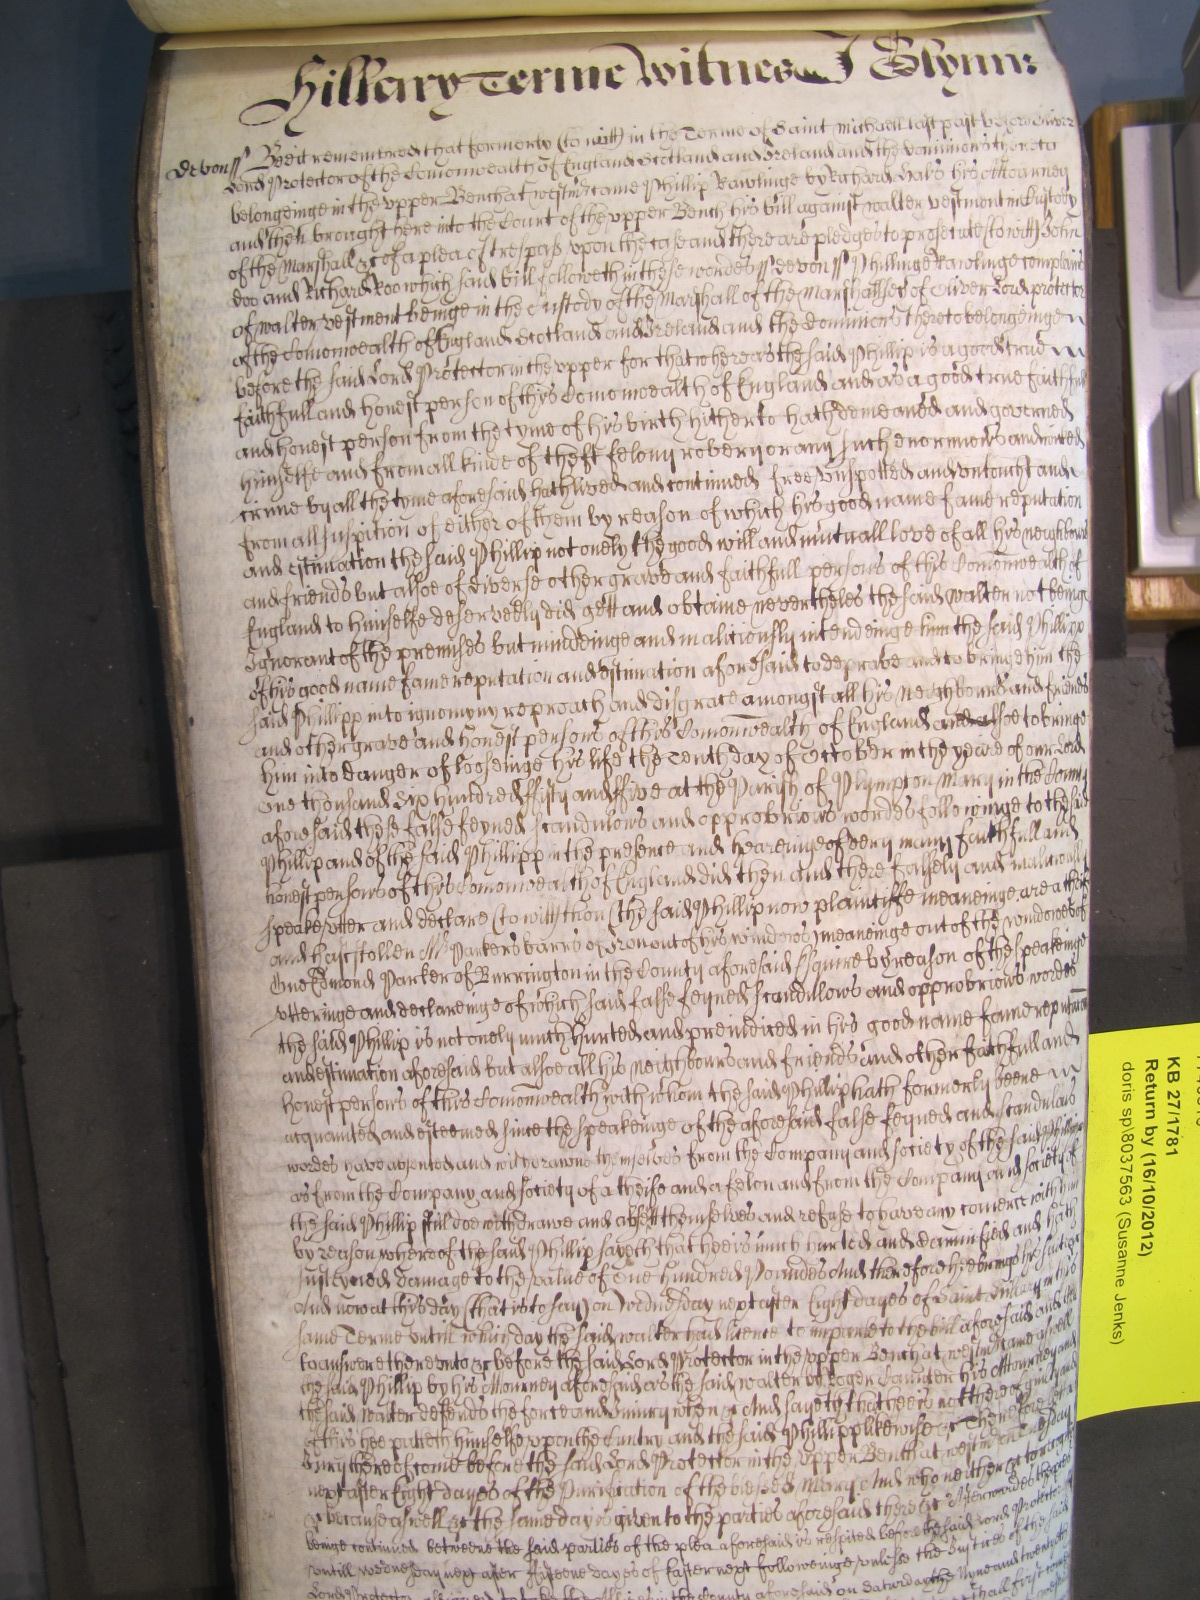 Hillary Terme Witnes J Glynn
Devon ss Bee it remembred that formerly (to witt) in the Terme of Saint Michaell last past before Oliver
Lord Protector of the Comonwealth of England Scotland and Ireland and the dominions thereto
belongeinge in the upper Bench at westm came Phillip Rawlinge by Richard Hals his Attourney
and then brought here into the Court of the upper Bench his bill against walter vestment in Custody
of the Marshall &c of a plea of trespass upon the case and there are pledges to prosecute (to witt) John
doo and Richard Roo which said bill followeth in these wordes ss devon ss Phillinge Rawlinge complains
of walter vestment beinge in the Custody of the Marshall of the Marshallsey of Oliver Lord protector
of the Comonwealth of England Scotland and Ireland and the dominions thereto belongeinge
before the said Lord Protector in the upper for that whereas the said Phillip is a good true
faithfull and honest person of this Comonwealth of England and as a good true faithfull
and honest person from the tyme of his birth hitherto hath demeaned and governed
himselfe and from all kinde of theft felony robery or any such enormious and noted
crime by all the tyme aforesaid hath lived and continued free unspotted and untoucht and
from all suspition of either of them by reason of which his good name fame reputation
and estimation the said Phillip not onely the good will and mutuall love of all his neighbours
and friends but alsoe of diverse other grave and faithfull persons of this Comonwealth of
England to himselfe deservedly did gett and obtaine nevertheles the said walter not beinge
Ignorant of the premises but mindeinge and maliciously intendeinge him the said Phillipp
of his good name fame reputation and estimation aforesaid to deprave and to bringe him the
said Phillipp into ignominy reproach and disgrace amongst all his neighbours and friends
and other grave and honest persons of this Comonwealth of England and alsoe to bringe
him into danger of looseinge his life the Tenth day of October in the yeare of our Lord
One thousand Six hundred fifty and ffive at the Parish of Plympton Mary in the County
aforesaid these false feyned scandulows and opprobriows wordes followinge to the said
Phillip and of the said Phillipp in the presence and heareinge of very many faithfull and
honest persons of this Comonwealth of England did then and there falsely and maliciously
speake utter and declare (to witt) thou (the said Phillip now plaintiffe meaneinge) are a theife
and hast stollen Mr Parkers barrs of Iron out of his windows) meaneinge out of the windowes of
One Edmond Parker of Burrington in the County aforesaid Esquire by reason of the speakeinge
utteringe and declareinge of which said false feyned scandullows and opprobriows wordes
the said Phillip is not onely much hurted and preiudiced in his good name fame reputation
and estimation aforesaid but alsoe all his neighbours and friends and other faithfull and
honest persons of this Comonwealth with whom the said Phillip hath formerly beene
acquainted and esteemed since the speakeinge of the aforesaid false feyned and scandulous
wordes have absented and withdrawne themselves from the Company and society of the said Phillip
as from the Company and society of a theife and a felon and from the Company and society of
the said Phillip still doe withdrawe and absent themselves and refuse to have any comerce with him
by reason whereof the said Phillip sayeth that hee is much hurted and damnified and hath
susteyned damage to the value of One hundred Poundes And therefore hee brings his suite &c
And now at this day (that is to say) on Wednesday next after Eight dayes of Saint Hillary in this
same Terme untill which day the said walter had licence to imparle to the bill aforesaid and
to answere thereunto &c before the said Lord Protector in the upper Bench at westm came aswell
the said Phillip by his Attourney aforesaid as the said walter by Roger his Attourney and
the said walter defends the force and Iniury when &c And sayeth that hee is not thereof guilty and
of this hee putteth himselfe upon the Cuntry and the said Phillipp likewise &c Therefore lett a
Iury thereof come before the said Lord Protector in the upper Bench at westm on
next after Eight dayes of the Purification of the blessed Mary And who neither &c to recogn
&c because aswell &c the same day is given to the parties aforesaid there &c Afterwardes the
beinge continued betweene the said parties of the plea aforesaid is respited before the said Lord Protector
untill wednesday next after fifteene dayes of Easter next followeinge unlesse the Iustices of the said
Lord Protector in the County aforesaid on Saturday the Nyne and twentith
shall first come
KB 27/1781
Return by (16/10/2012)
doris sp\8037563 (Susanne Jenks)